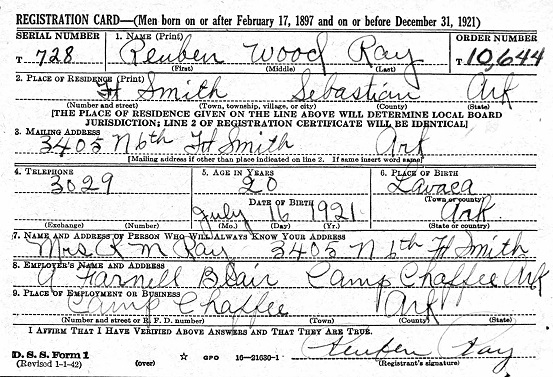 REGISTRATION CARD—(Men born on or after February 17, 1897 and on or before December 31, 1921)
SERIAL NUMBER 1. NAME (Print) ORDER NUMBER
T 728 Reuben Wood Ray T 10,644
(First) (Middle) (Last)
2. PLACE OF RESIDENCE (Print)
Ft Smith Sebastian Ark
(Number and street) (Town, township, village, or city) (County) (State)
[THE PLACE OF RESIDENCE GIVEN ON THE LINE ABOVE WILL DETERMINE LOCAL BOARD
JURISDICTION; LINE 2 OF REGISTRATION CERTIFICATE WILL BE IDENTICAL]
3. MAILING ADDRESS
3403 N 6th Ft Smith Ark
[Mailing address if other than place indicated on line 2. If same insert word same]
4. TELEPHONE 5. AGE IN YEARS 6. PLACE OF BIRTH
3029 20 Lavaca
DATE OF BIRTH (Town or county)
July 16 1921 Ark
(Exchange) (Number) (Mo.) (Day) (Yr.) (State or country)
7. NAME AND ADDRESS OF PERSON WHO WILL ALWAYS KNOW YOUR ADDRESS
Mrs R M Ray 3403 N 6th Ft Smith
8. EMPLOYER'S NAME AND ADDRESS
Farnell Blair Camp Chaffee Ark
9. PLACE OF EMPLOYMENT OR BUSINESS
Camp Chaffee Ark
(Number and street or R. F. D. number) (Town) (County) (State)
I AFFIRM THAT I HAVE VERIFIED ABOVE ANSWERS AND THAT THEY ARE TRUE.
Reuben Ray
D. S. S. Form 1 GPO 16—21630-1 (Registrant's signature)
(Revised 1-1-42) (over)